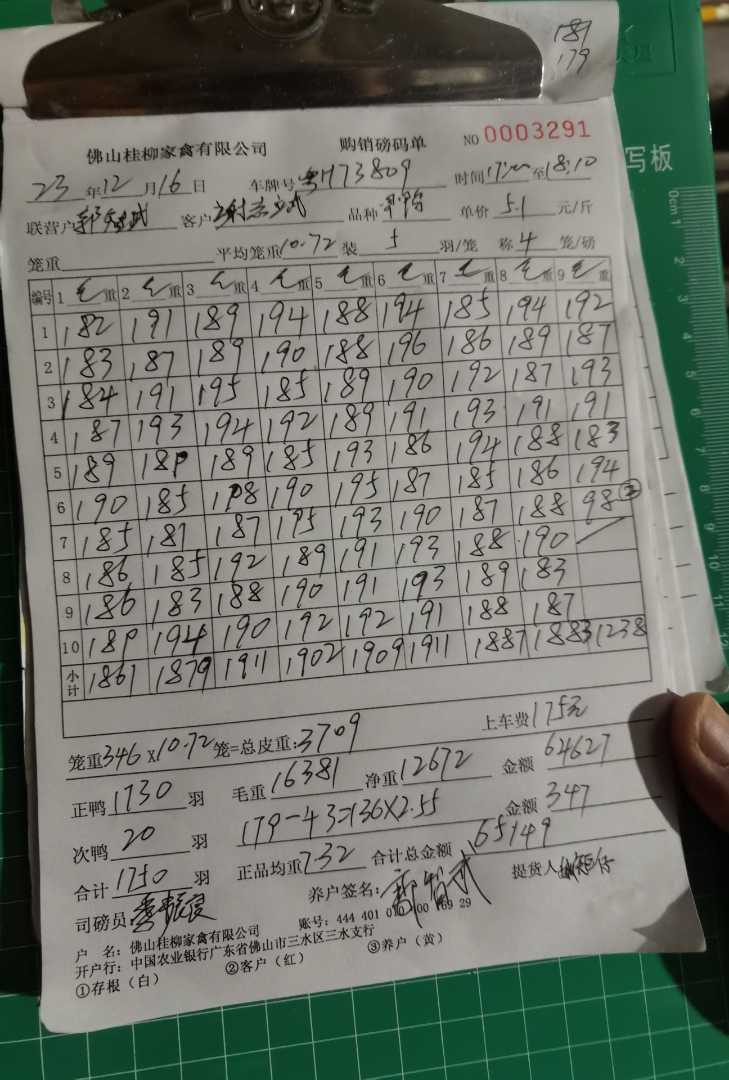 189
179
写板
佛山桂柳家禽有限公司 购销磅码单 NO 0003291
23年12月16日 车牌号 H73809 时间17:00至18:10
联营户 客户 品种 单价5.1元/斤
笼重 平均笼重10.72装5羽/笼 称4笼/磅
编号 1 毛重 2 毛重 3 毛重 4 毛重 5 毛重 6 毛重 7 毛重 8 毛重 9 毛重
1 182 191 189 194 188 194 185 194 192
2 183 187 189 190 188 196 186 189 187
3 184 191 195 185 189 190 192 187 193
4 187 193 194 192 189 191 193 191 191
5 189 189 185 193 186 194 188 183
6 190 185 190 195 187 185 186 194
7 185 187 187 195 193 190 187 188 98 ②
8 186 185 192 189 191 193 188 190
9 186 183 188 190 191 193 189 183
10 189 194 190 192 192 191 188 187
小计 1861 1879 1911 1902 1909 1911 1887 1883 1238
笼重346×10.72笼=总皮重:3709 上车费175元
正鸭1730羽 毛重16381 净重12672 金额64627
次鸭20羽 179-43=136×2.55 金额347
合计1750羽 正品均重7.32 合计总金额65149
司磅员: 养户签名: 提货人
户 名:佛山桂柳家禽有限公司 账号:444 401 010 400 169 29
开户行:中国农业银行广东省佛山市三水区三水支行
①存根(白) ②客户(红) ③养户(黄)
0cm 1 2 3 4 5 6 7 8 9 10 11 12